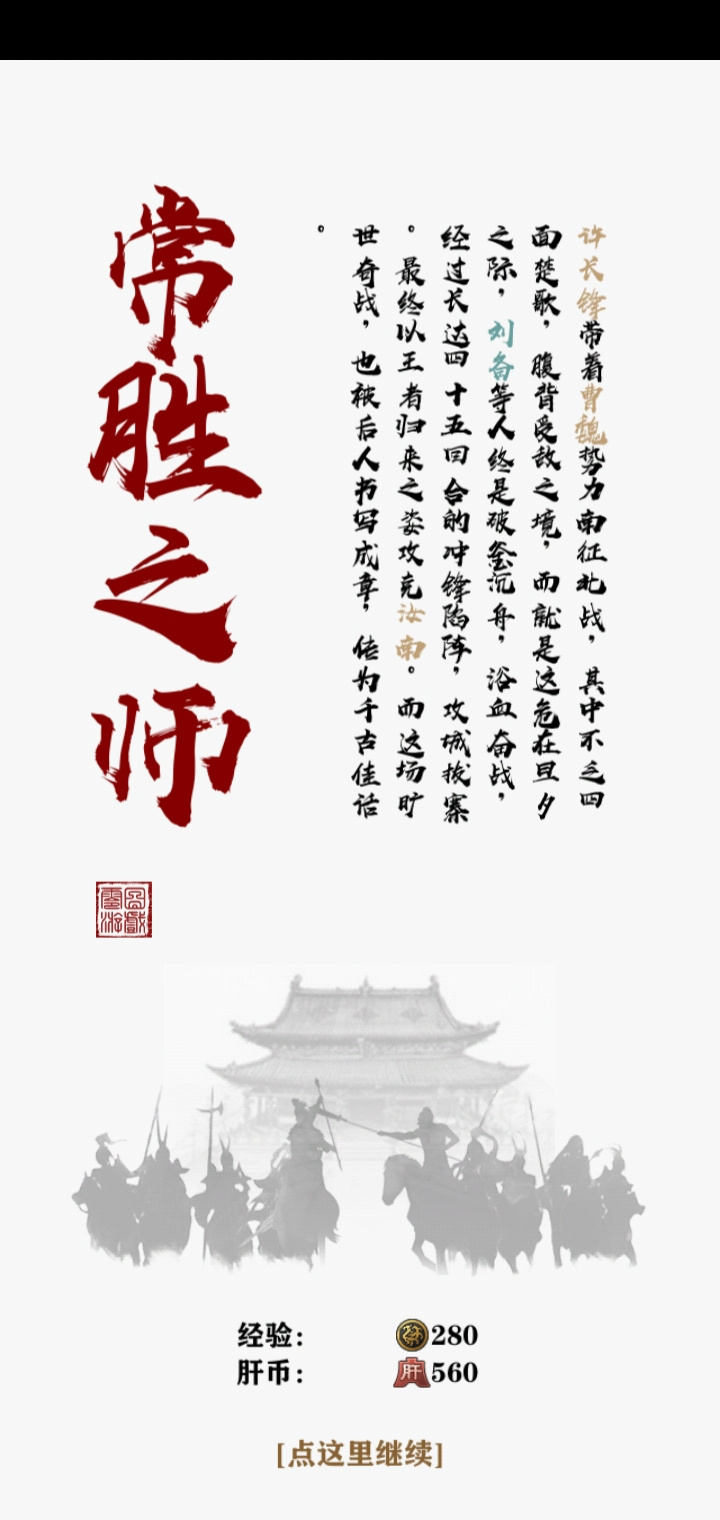 许长锋带着曹魏势力南征北战，其中不乏四
面楚歌，腹背受敌之境，而就是这危在旦夕
之际，刘备等人终是破釜沉舟，浴血奋战，
经过长达四十五回合的冲锋陷阵，攻城拔寨
。最终以王者归来之姿攻克汝南。而这场旷
世奇战，也被后人书写成章，传为千古佳话
。
常胜之师
经验： 280
肝币： 肝 560
[点这里继续]